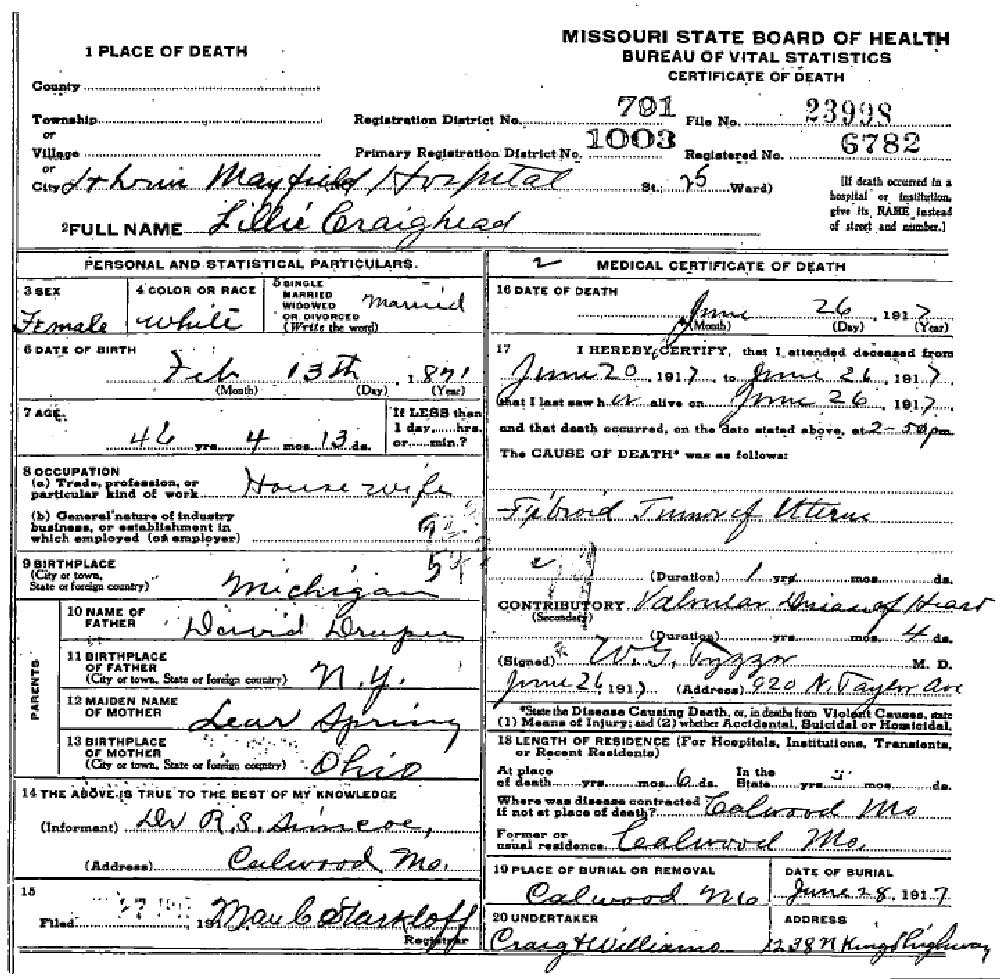 MISSOURI STATE BOARD OF HEALTH
BUREAU OF VITAL STATISTICS
CERTIFICATE OF DEATH
1 PLACE OF DEATH
County
Township
or
Village
or
City St Louis Mayfield Hospital St.; 25 Ward)
Registration District No. 791 File No. 23998
Primary Registration District No. 1003 Registered No. 6782
[If death occurred in a
hospital or institution,
give its NAME instead
of street and number.]
2 FULL NAME Lillie Craighead
PERSONAL AND STATISTICAL PARTICULARS.
3 SEX
Female
4 COLOR OR RACE
White
5 SINGLE
MARRIED
WIDOWED
OR DIVORCED
(Write the word)
Married
6 DATE OF BIRTH
Feb 13th, 1871
(Month) (Day) (Year)
7 AGE.
46 yrs. 4 mos. 13 ds.
If LESS than
1 day,......hrs.
or......min.?
8 OCCUPATION
(a) Trade, profession, or
particular kind of work House wife
(b) General nature of industry
business, or establishment in
which employed (or employer)
9 BIRTHPLACE
(City or town,
State or foreign country)
Michigan
PARENTS
10 NAME OF
FATHER
David
11 BIRTHPLACE
OF FATHER
(City or town, State or foreign country) N.Y.
12 MAIDEN NAME
OF MOTHER
Lear Spring
13 BIRTHPLACE
OF MOTHER
(City or town, State or foreign country) Ohio
14 THE ABOVE IS TRUE TO THE BEST OF MY KNOWLEDGE
(Informant) Dr R.S. Simcoe,
(Address) Calwood Mo.
15
Filed 191 Max C Starkloff
Registrar
2 MEDICAL CERTIFICATE OF DEATH
16 DATE OF DEATH
June 26, 1917
(Month) (Day) (Year)
17 I HEREBY CERTIFY, that I attended deceased from
June 20, 1917, to June 26, 1917,
that I last saw her alive on June 26, 1917,
and that death occurred, on the date stated above, at 2-50pm
The CAUSE OF DEATH* was as follows:
Fibroid Tumor of Uterus
(Duration) 1 yrs. mos. ds.
CONTRIBUTORY Valvular Disease of Heart
(Secondary)
(Duration) yrs. mos. 4 ds.
(Signed) W.G. M. D.
June 26, 1917 (Address) 920 N. Taylor Ave
*State the Disease Causing Death, or, in deaths from Violent Causes, state
(1) Means of Injury; and (2) whether Accidental, Suicidal or Homicidal.
18 LENGTH OF RESIDENCE (For Hospitals, Institutions, Transients,
or Recent Residents)
At place
of death yrs. mos. 6 ds.
In the
State yrs. mos. ds.
Where was disease contracted
if not at place of death? Calwood Mo
Former or
usual residence. Calwood Mo.
19 PLACE OF BURIAL OR REMOVAL
Calwood Mo
DATE OF BURIAL
June 28, 1917
20 UNDERTAKER
Craig & Williams
ADDRESS
1238 N Kingshighway